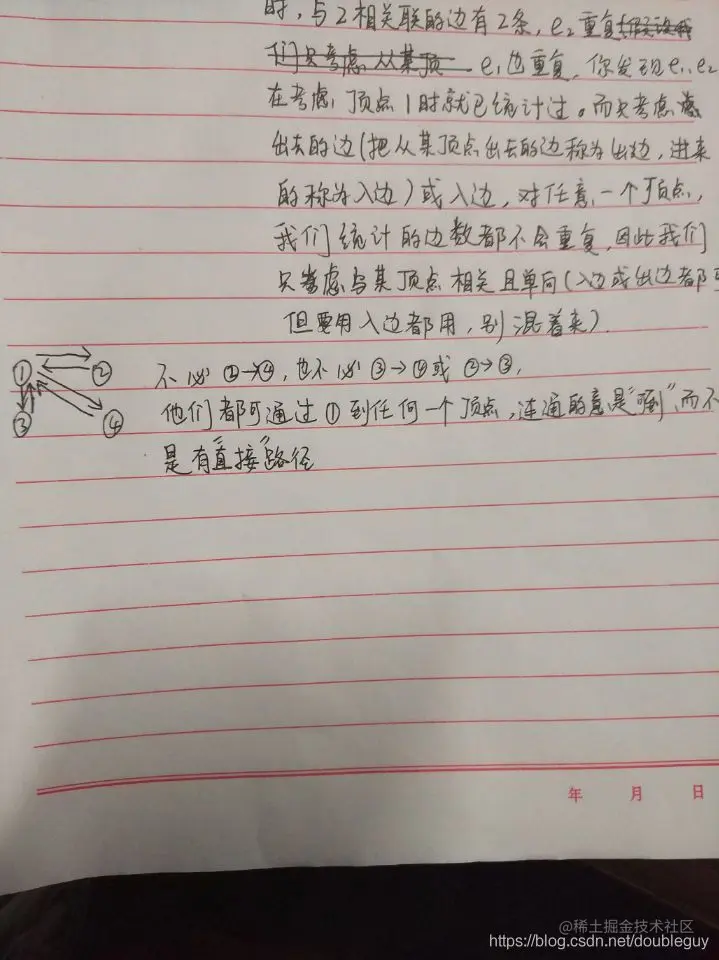 时，与2相关联的边有2条，e2重复(假设我
们只考虑从某顶 e1也重复，你发现e1、e2
在考虑顶点1时就已统计过。而只考虑
出去的边(把从某顶点出去的边称为出边，进来
的称为入边)或入边，对任意一个顶点，
我们统计的边数都不会重复，因此我们
只考虑与某顶点相关且单向(入边或出边都可
但要用入边都用，别混着来)
① ② 不必②→④，也不必③→④或②→③，
③ ④ 他们都可通过①到任何一个顶点，连通的意是"到"，而不
是有"直接"路径
年 月 日
@稀土掘金技术社区
https://blog.csdn.net/doubleguy